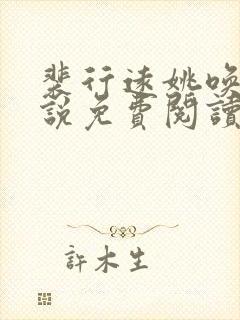 裴行遠姚喚
說免費閱讀
許木生